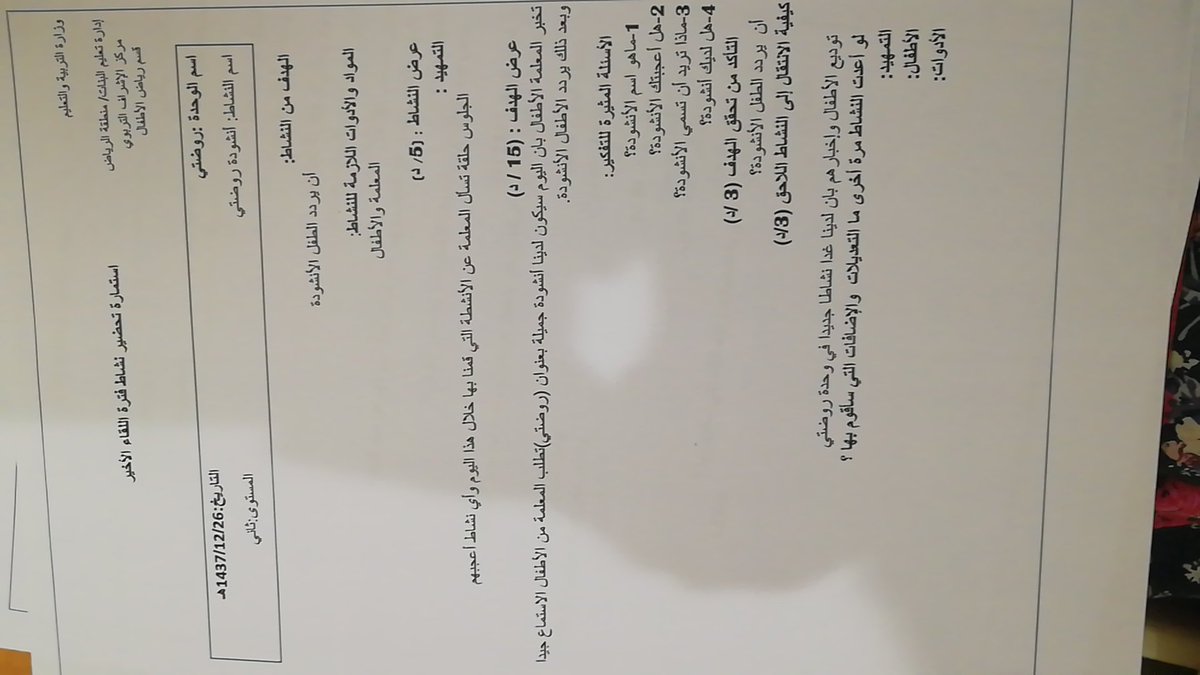 وزارة التربية والتعليم
إدارة تعليم البنات/ منطقة الرياض
مركز الإشراف التربوي
قسم رياض الأطفال
استمارة تحضير نشاط فترة اللقاء الأخير
اسم الوحدة :روضتي
التاريخ:1437/12/26هـ
اسم النشاط: أنشودة روضتي
المستوى:ثاني
الهدف من النشاط:
أن يردد الطفل الأنشودة
المواد والأدوات اللازمة للنشاط:
المعلمة والأطفال
عرض النشاط : (5/ د)
التمهيد :
الجلوس حلقة تسأل المعلمة عن الأنشطة التي قمنا بها خلال هذا اليوم وأي نشاط أعجبهم
عرض الهدف : (15 / د)
تخبر المعلمة الأطفال بان اليوم سيكون لدينا أنشودة جميلة بعنوان (روضتي)تطلب المعلمة من الأطفال الاستماع جيدا
وبعد ذلك يردد الأطفال الأنشودة.
الأسئلة المثيرة للتفكير:
1-ماهو اسم الأنشودة؟
2-هل أعجبتك الأنشودة؟
3-ماذا تريد أن تسمي الأنشودة؟
4-هل لديك أنشودة؟
التأكد من تحقق الهدف (3 /د)
أن يردد الطفل الأنشودة؟
كيفية الانتقال إلى النشاط اللاحق (3/د)
توديع الأطفال وإخبارهم بان لدينا غدا نشاطا جديدا في وحدة روضتي
لو أعدت النشاط مرة أخرى ما التعديلات والإضافات التي سأقوم بها ؟
التمهيد:
الأطفال:
الأدوات: